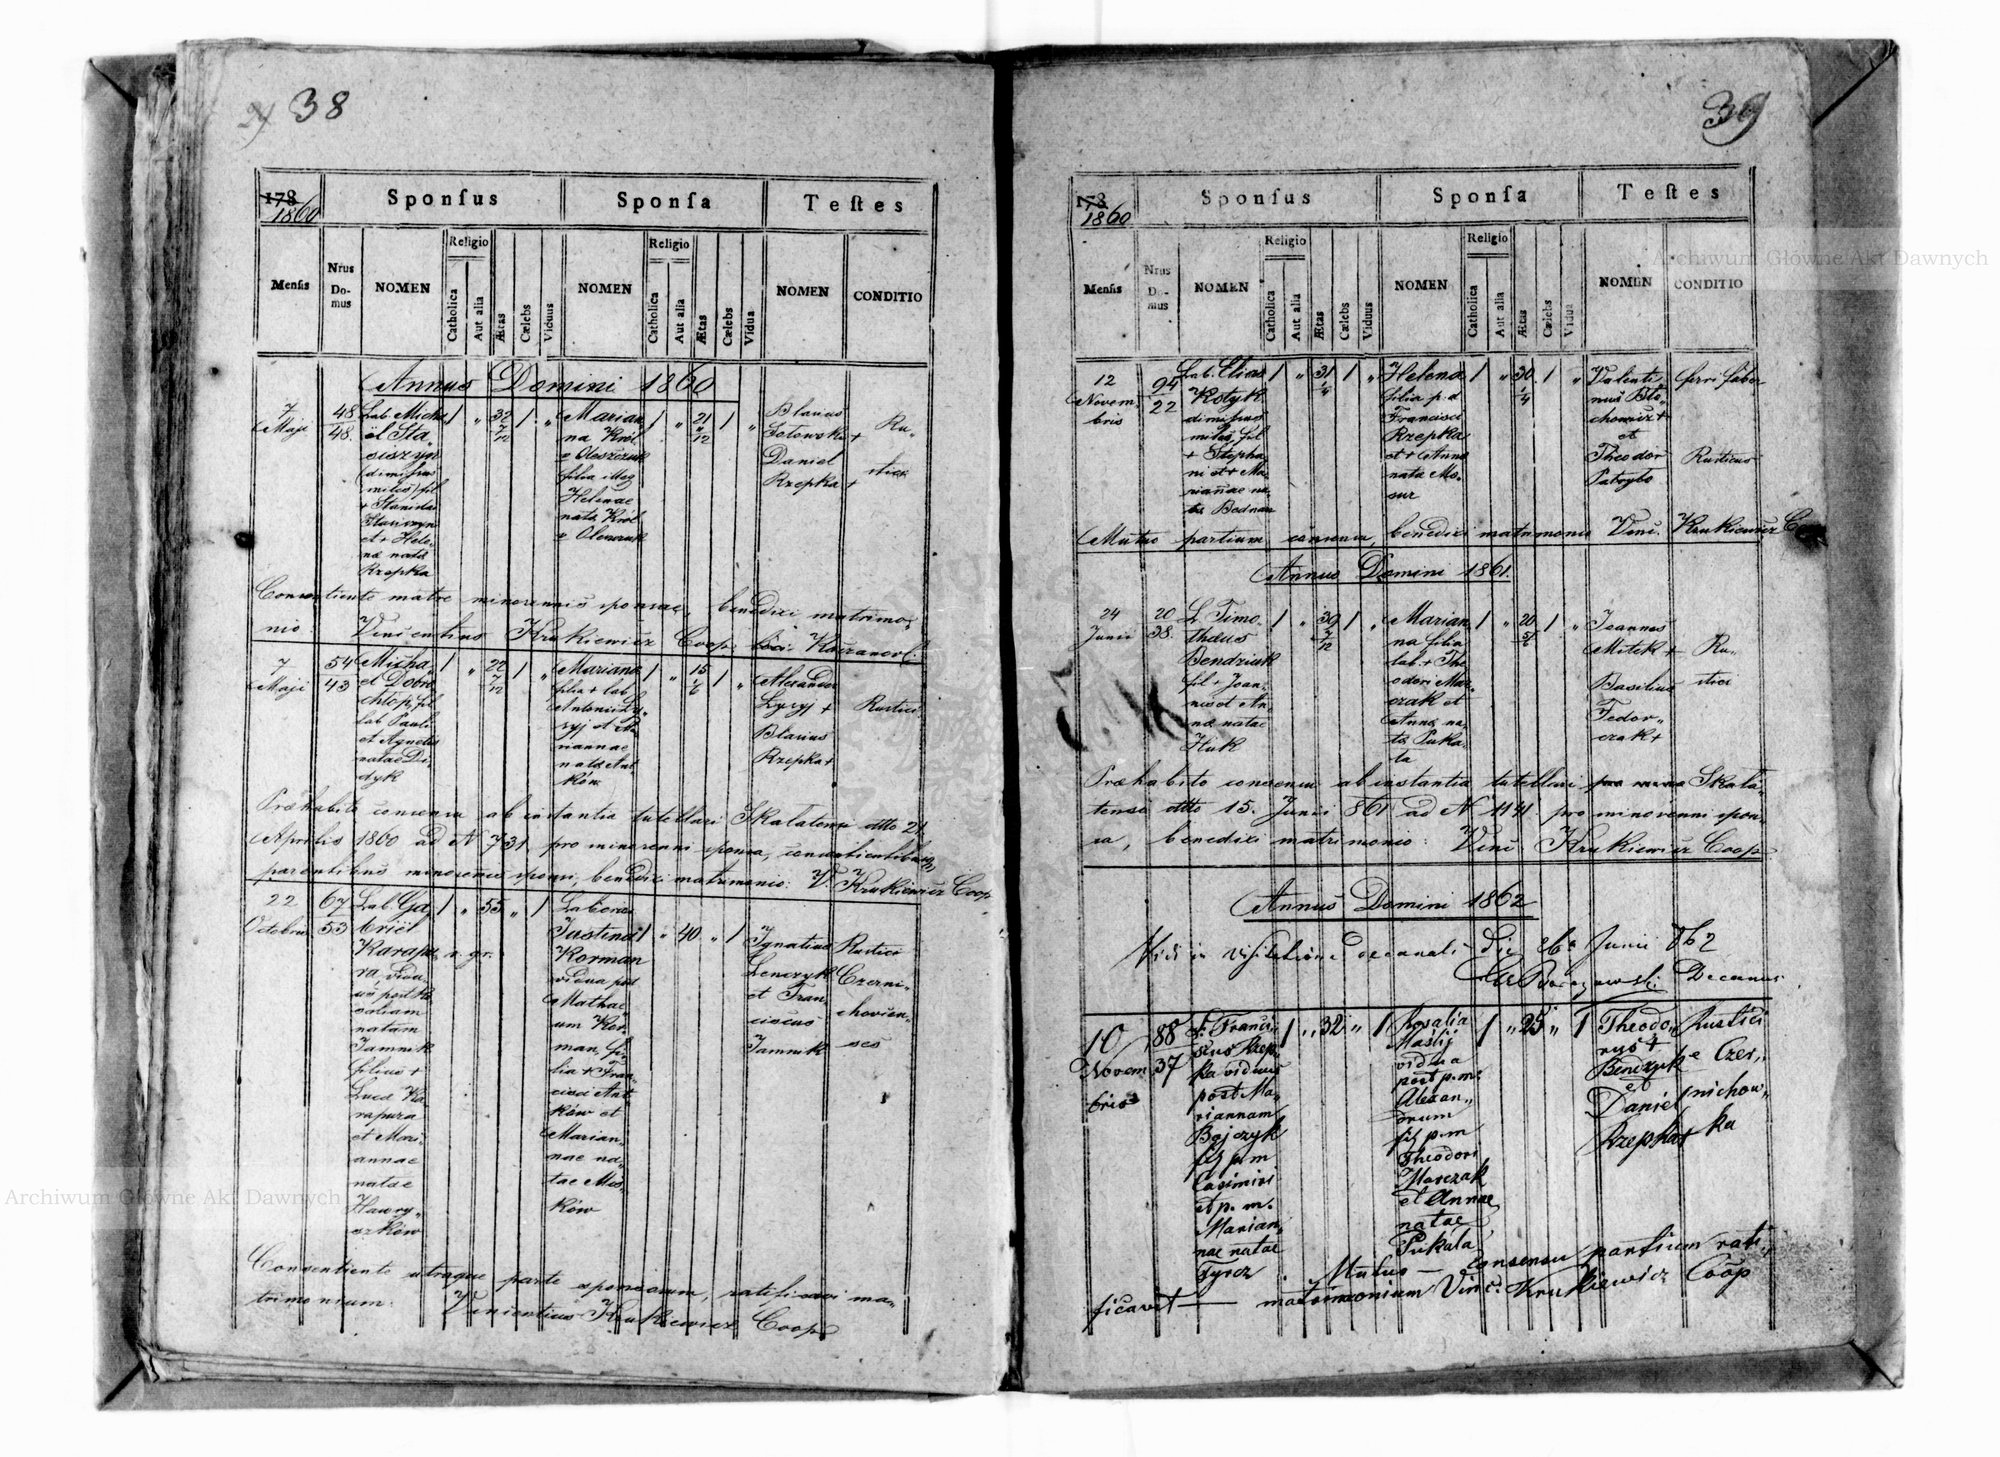 38
178
1860
Sponſus
Sponſa
Teſtes
Menſis
Nrus Do- mus
NOMEN
Religio
Catholica
Aut alia
Ætas
Cælebs
Viduus
NOMEN
Religio
Catholica
Aut alia
Ætas
Cælebs
Vidua
NOMEN
CONDITIO
Annus Domini 1860
7 Maji
48
48.
Lab. Micha
ël Sta„
siszyn
(dimissus
miles) fil
+ Stanislai
Stasiszyn
et + Hele„
nae natae
Rzepka
/ „ 32 7/12 / „
Marian
na Król
v Oleszczuk
filia illeg
Helenae
natae Król
v Oleszczuk
/ „ 21 „/12 / „
Blasius
+
Daniel
Rzepka +
Ru„
stici
Consentiente matre minorennis sponsae, benedixi matrimo„
nio. Vincentius Krukiewicz Coop.
7 Maji
54
43
Micha
el Dobro
chłop, fil
lab. Pauli
et Agnetis
natae Di„
dyk
/ „ 22 7/12 / „
Marianna
filia + lab
Antonii Ły„
syj et Ma
riannae
natae Ant
ków
/ „ 15 1/6 / „
Alexander
Łysyj +
Blasius
Rzepka +
Rustici
Praehabito consensu ab instantia tutellari Skalatensi ddto 21
Aprilis 1860 ad N 731, pro minorenni sponsa, consentientibus
parentibus minorennis sponsi, benedixi matrimonio: V. Krukiewicz Coop
22
Octobris
67
53
Lab. Ga„
briël
Karapu
ra vidu
us post Ro
saliam
natam
Jamnik
filius +
Lucae Ka
rapura
et Mari„
annae
natae
Hawry„
szków
/ „ 55 „ /
r. gr.
Laborios
Justina
Korman
vidua post
Mathae„
um Kor„
man, fi„
lia + Fran„
cisci Ant
ków et
Marian„
nae na„
tae Mus„
ków
/ „ 40 „ /
Ignatius
Lenczyk
et Fran„
ciscus
Jamnik
Rustici
Czerni„
chovien„
ses
Consentiente utraque parte sponsorum, ratificavi ma„
trimonium. Vincentius Krukiewicz Coop
39
178
1860
Sponſus
Sponſa
Teſtes
Menſis
Nrus Do- mus
NOMEN
Religio
Catholica
Aut alia
Ætas
Cælebs
Viduus
NOMEN
Religio
Catholica
Aut alia
Ætas
Cælebs
Vidua
NOMEN
CONDITIO
12
Novem„
bris
94
22
Lab. Elias
Kotyk
dimissus
miles, fil
+ Stepha„
ni et + Ma„
riannae na„
tae Bednarz
/ „ 31 1/4 / „
Helena
filia p. d
Francisci
Rzepka
et + Anna
nata Ma„
sur
/ „ 30 1/4 / „
Valenti„
nus Bło„
chowicz +
et
Theodor
Patryło
ferri fabe„
Rusticus
Mutuo partium consensu, benedixi matrimonio Vinc. Krukiewicz Coop
Annus Domini 1861.
24
Junii
20
38.
L. Timo„
theus
Bendziuk
fil + Joan„
nis et An„
nae natae
Huk
/ „ 30 7/12 / „
Marian
na filia
lab. + The
odori Mar„
czak et
Anna na„
ta Puka„
ła
/ „ 20 5/6 / „
Joannes
Mitek +
Basilius
Fedor„
czak +
Ru„
stici
Praehabito consensu ab instantia tutellari Skala„
tensi ddto 15. Junii 861 ad N 1141 pro minorenni spon„
sa, benedixi matrimonio: Vinc Krukiewicz Coop
Annus Domini 1862
Vidi in visitatione decanali die Junii 862
Decanus
10
Novem
bris
88
37
L. Franci„
scus Rzep„
ka viduus
post Ma„
riannam
Bajczyk
fil p. m
Casimiri
et p. m.
Marian„
nae natae
Tyrcz
/ „ 32 „ /
Rosalia
Maslij
vidua
post p. m.
Alexan„
drum
fil p. m
Theodori
Marczak
et Annae
natae
Pukała
/ „ 25 „ /
Theodo„
rus +
Benczyk
et
Daniel
Rzepka +
Rustici
e Czer„
nichow„
ka
Mutuo consensu partium rati„
ficavit matrimonium Vinc. Krukiewicz Coop
Archiwum Główne Akt Dawnych
Archiwum Główne Akt Dawnych